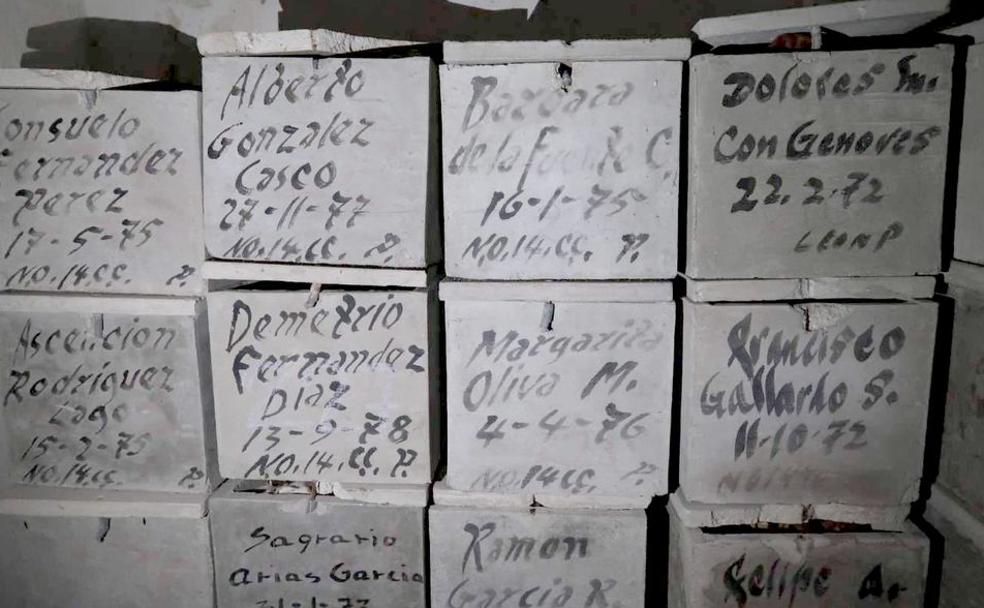 Consuelo
Fernandez
Perez
17-5-75
NO.14.CC. P.
Alberto
Gonzalez
Casco
27-11-77
NO.14.CC. P.
Barbara
de la Fuente C.
16-1-75
NO.14.CC. P.
Dolores M.
Con Genoves
22.2.72
LEON P
Ascencion
Rodriguez
Lago
15-2-75
NO.14.CC. P.
Demetrio
Fernandez
Diaz
13-9-78
NO.14.CC. P.
Margarita
Oliva M.
4-4-76
NO14CC. P.
Francisco
Gallardo S.
11-10-72
Sagrario
Arias Garcia
Ramon
Garcia R.
Felipe A.